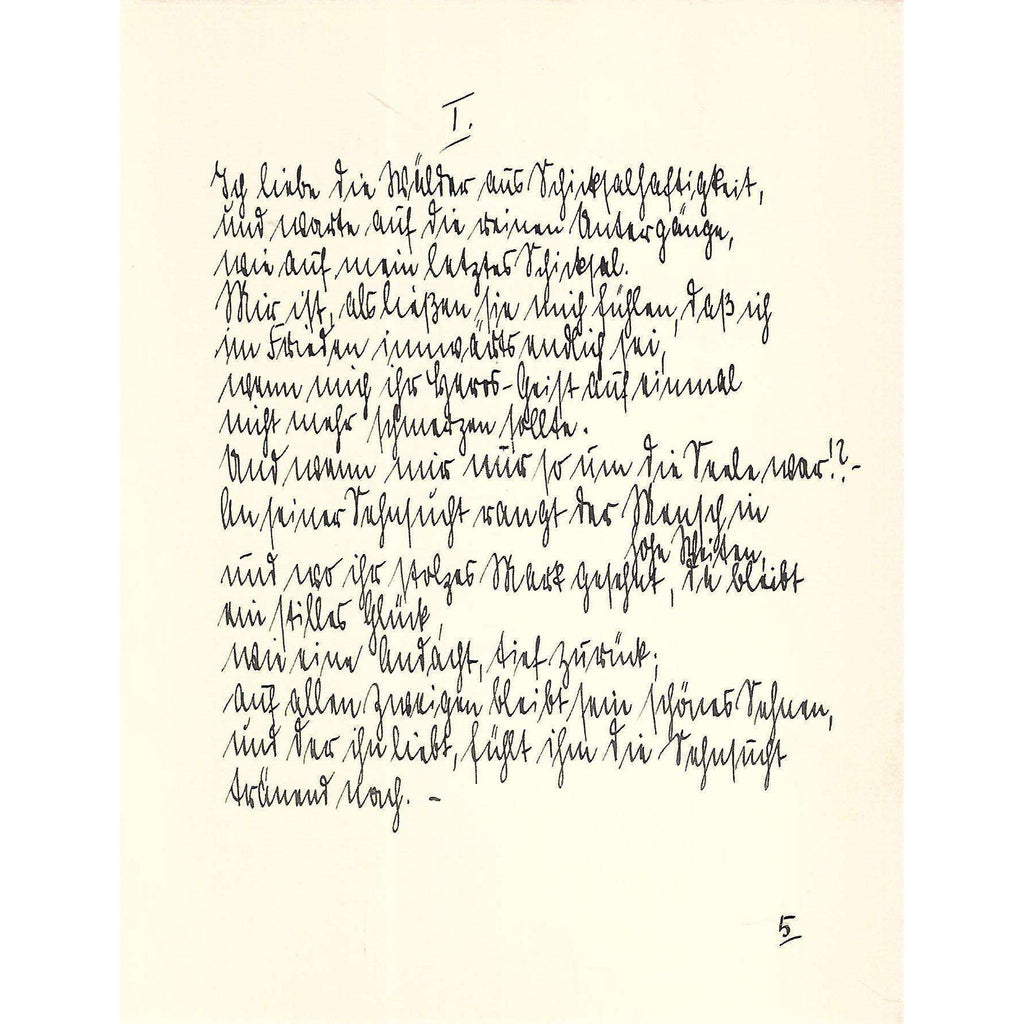 I.
Ich liebe die Wälder aus Schicksalhaftigkeit,
und warte auf die reinen Untergänge,
wie auf mein letztes Schicksal.
Mir ist, als ließen sie mich fühlen, daß ich
im Frieden innwärts endlich sei,
wenn mich ihr Heros-Geist auf einmal
nicht mehr schmerzen sollte.
Und wenn mir nur so um die Seele war!? -
An seiner Sehnsucht rangt der Mensch in
hohe Weiten,
und wo ihr stolzes Mark gesehnt, da bleibt
ein stilles Glück,
wie eine Andacht, tief zurück;
auf allen Zweigen bleibt sein schönes Sehnen,
und der ihn liebt, fühlt ihm die Sehnsucht
tränend nach. -
5